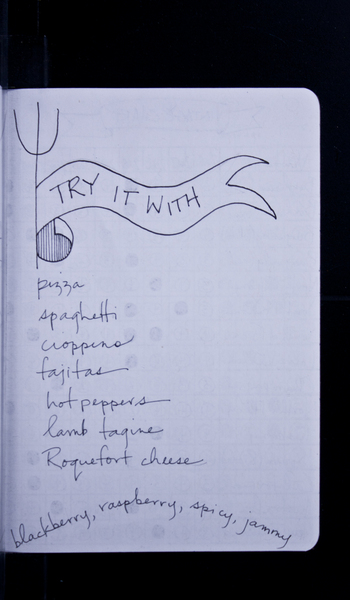 TRY IT WITH
pizza
spaghetti
cioppino
fajitas
hot peppers
lamb tagine
Roquefort cheese
blackberry, raspberry, spicy, jammy